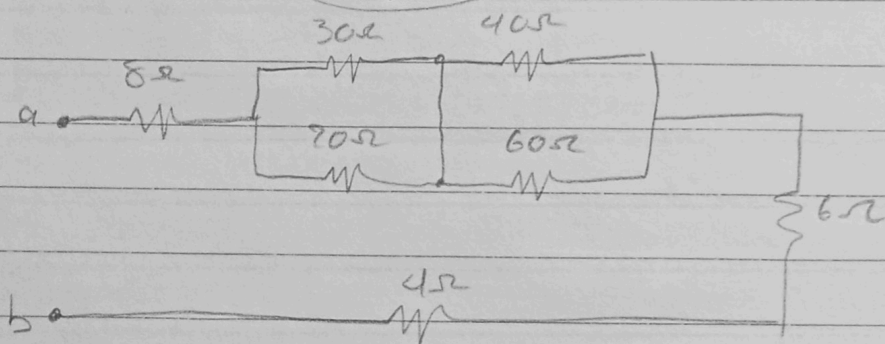 30Ω 40Ω
8Ω
a
20Ω 60Ω
6Ω
4Ω
b